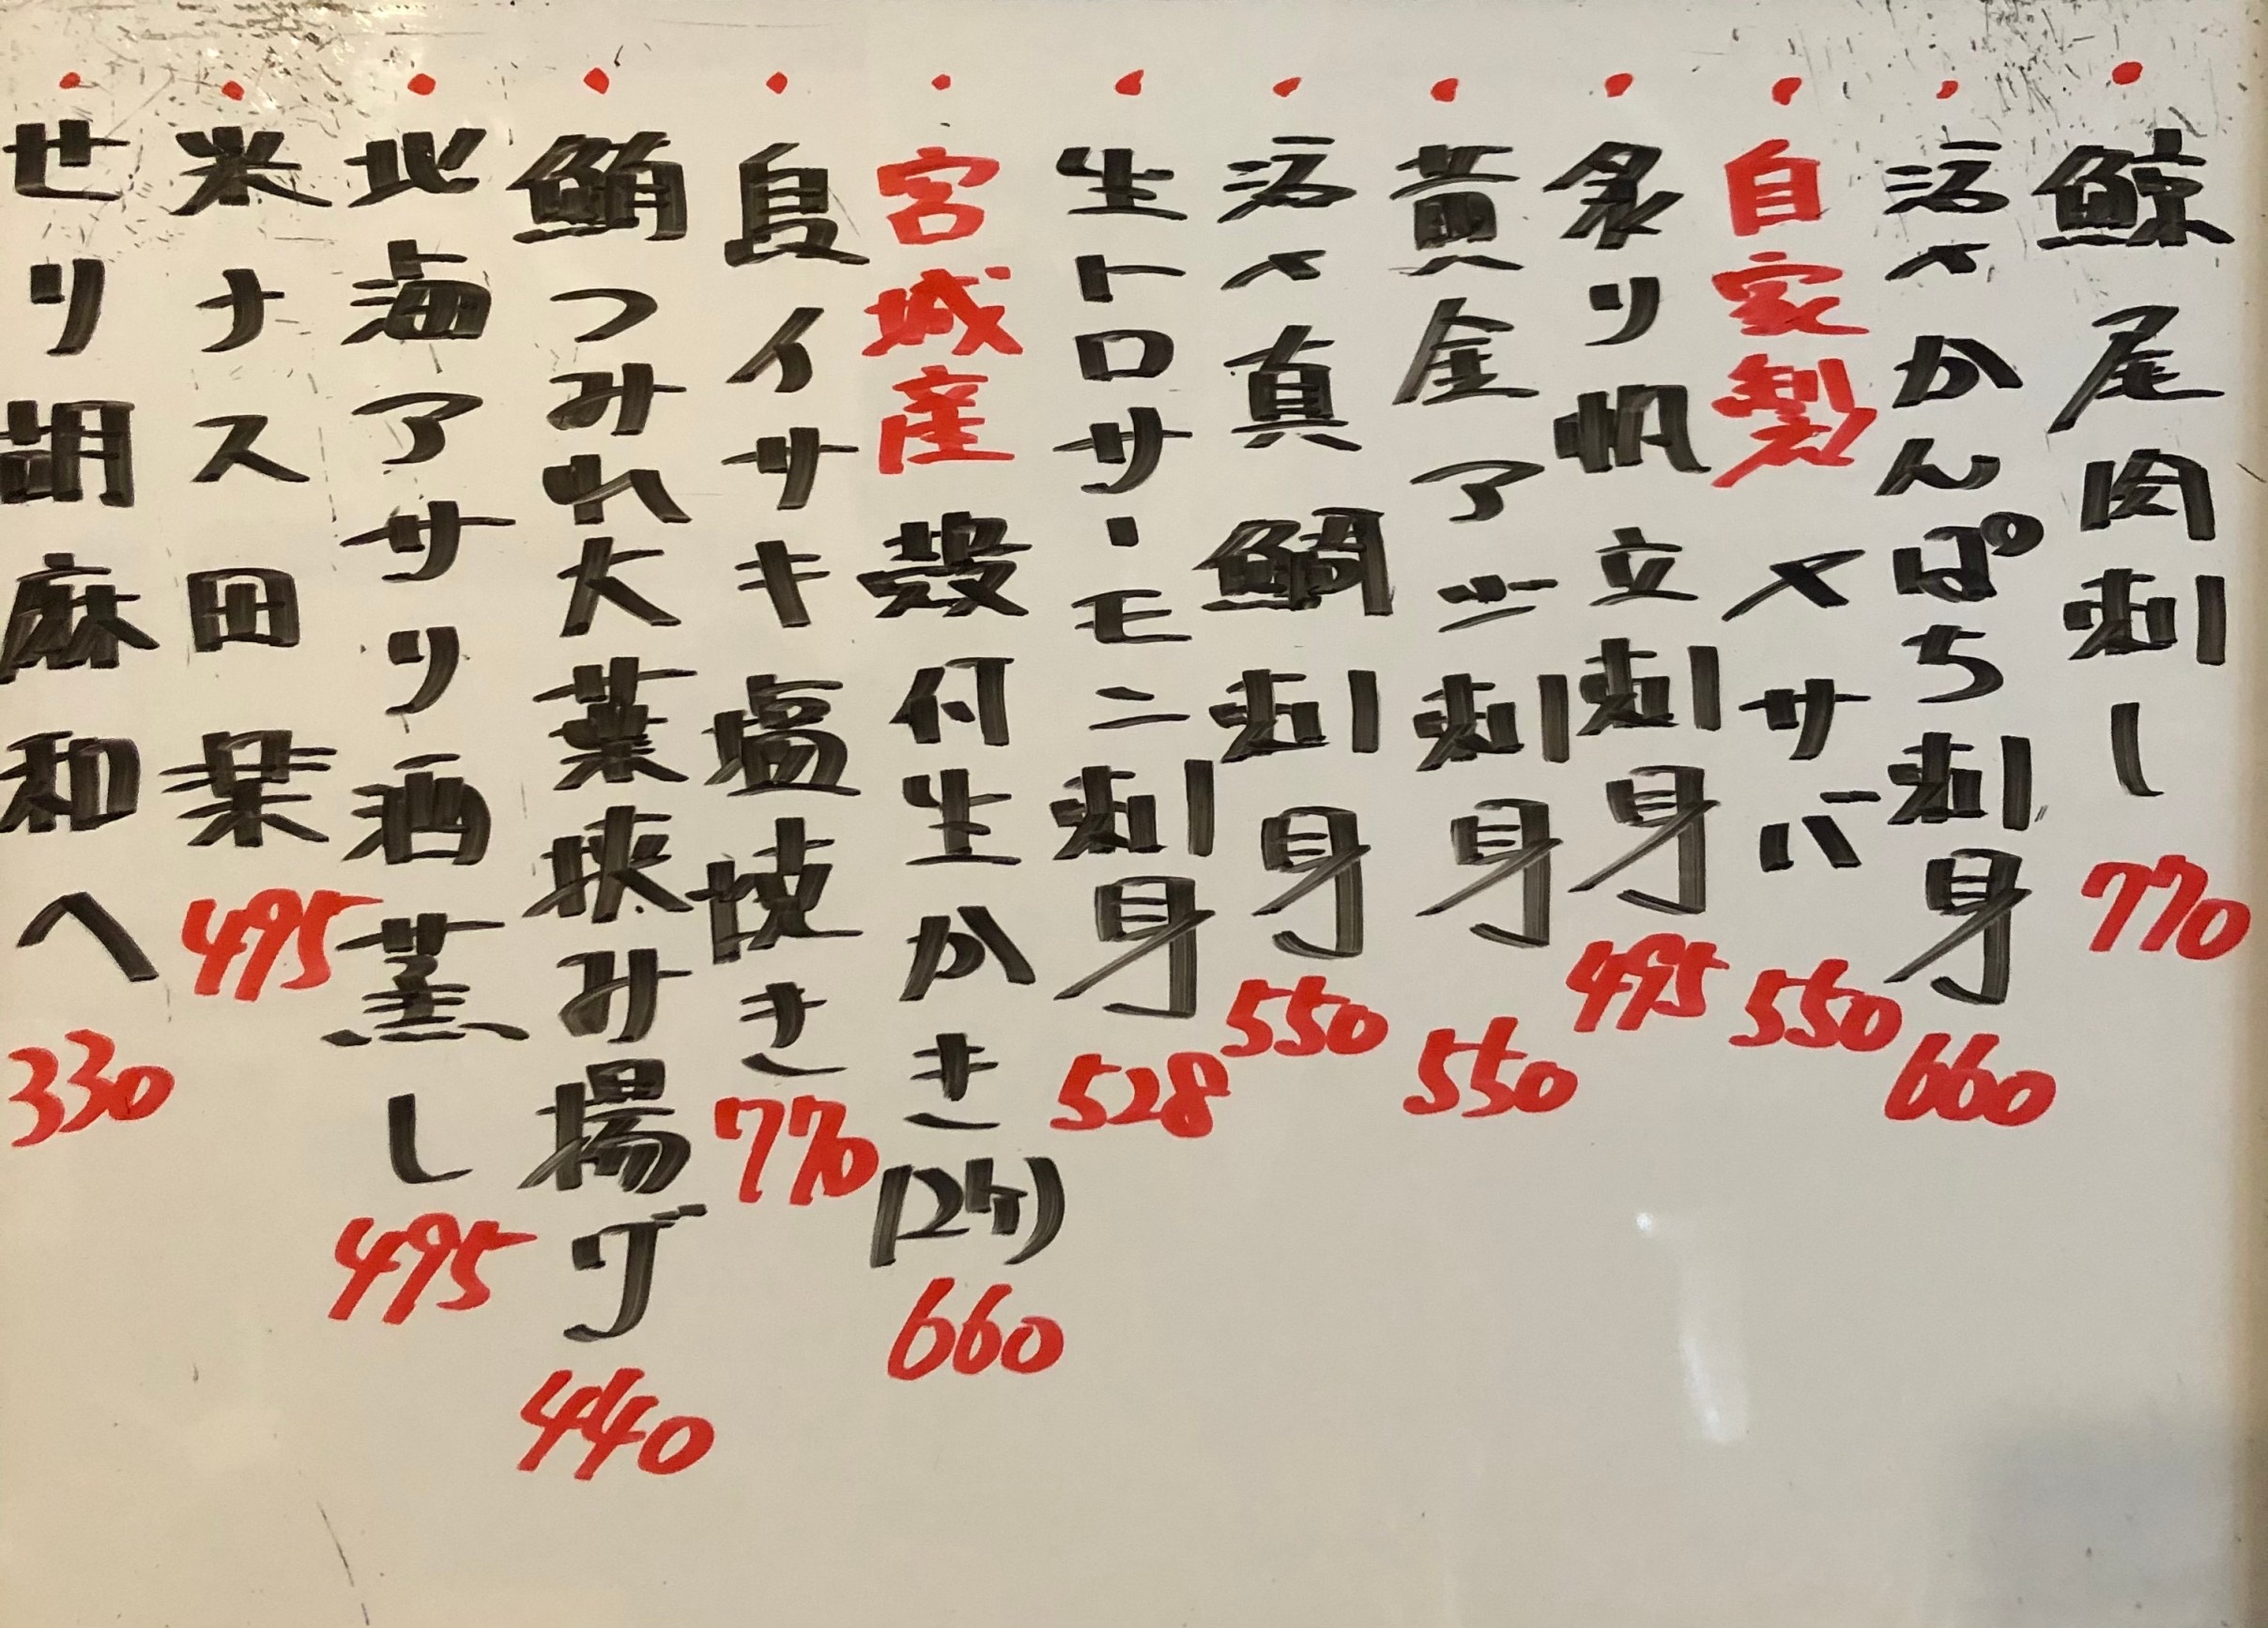 ・鯨尾肉刺し 770
・活〆かんぱち刺身 660
・自家製〆サバ 550
・炙り帆立刺身 495
・黄金アジ刺身 550
・活〆真鯛刺身 550
・生トロサーモン刺身 528
・宮城産殻付生かき(2ケ) 660
・島イサキ塩焼き 770
・鮪つみれ大葉挟み揚げ 440
・地海アサリ酒蒸し 495
・米ナス田楽 495
・せり胡麻和へ 330